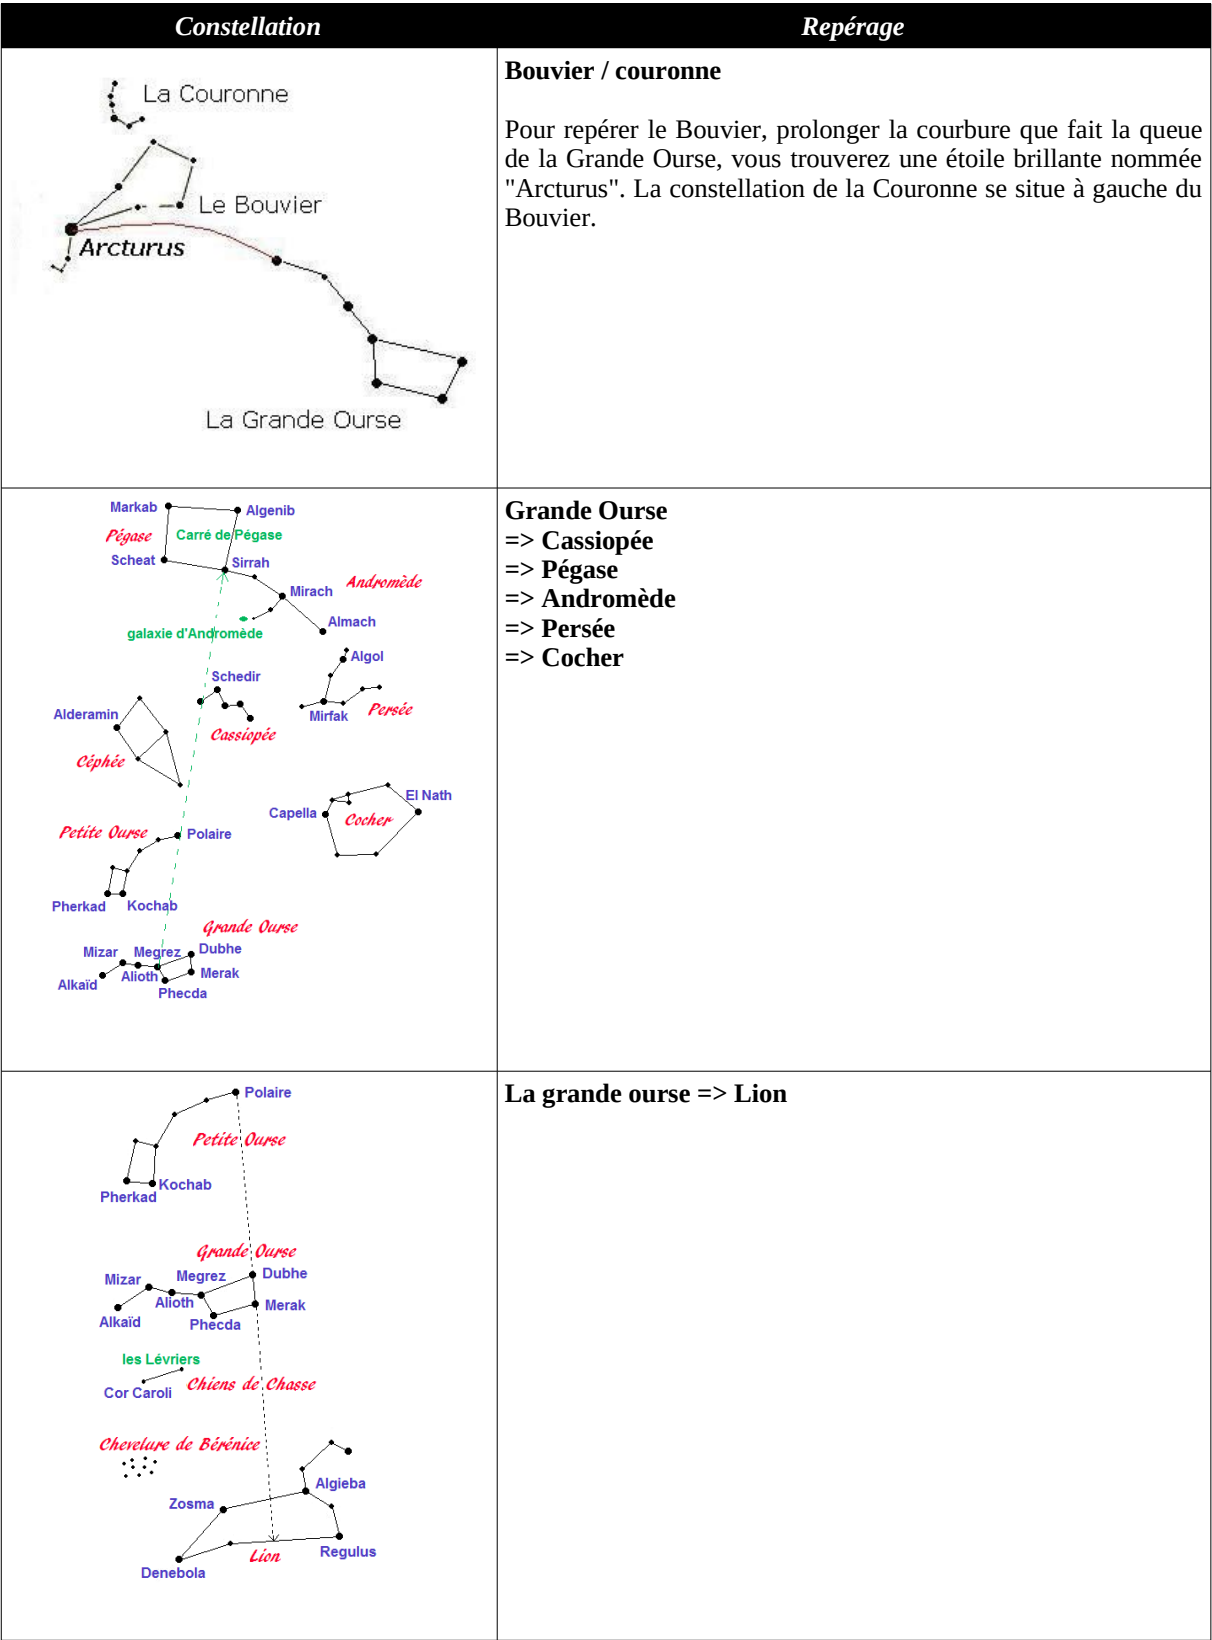 Constellation
Repérage
La Couronne
Le Bouvier
Arcturus
La Grande Ourse
Bouvier / couronne
Pour repérer le Bouvier, prolonger la courbure que fait la queue
de la Grande Ourse, vous trouverez une étoile brillante nommée
"Arcturus". La constellation de la Couronne se situe à gauche du
Bouvier.
Markab
Algenib
Pégase
Carré de Pégase
Scheat
Sirrah
Andromède
Mirach
Almach
galaxie d'Andromède
Algol
Schedir
Alderamin
Mirfak
Persée
Cassiopée
Céphée
El Nath
Capella
Cocher
Petite Ourse
Polaire
Pherkad
Kochab
Grande Ourse
Mizar
Megrez
Dubhe
Alioth
Merak
Alkaïd
Phecda
Grande Ourse
=> Cassiopée
=> Pégase
=> Andromède
=> Persée
=> Cocher
Polaire
Petite Ourse
Kochab
Pherkad
Grande Ourse
Mizar
Megrez
Dubhe
Alioth
Merak
Alkaïd
Phecda
les Lévriers
Cor Caroli
Chiens de Chasse
Chevelure de Bérénice
Algieba
Zosma
Lion
Regulus
Denebola
La grande ourse => Lion